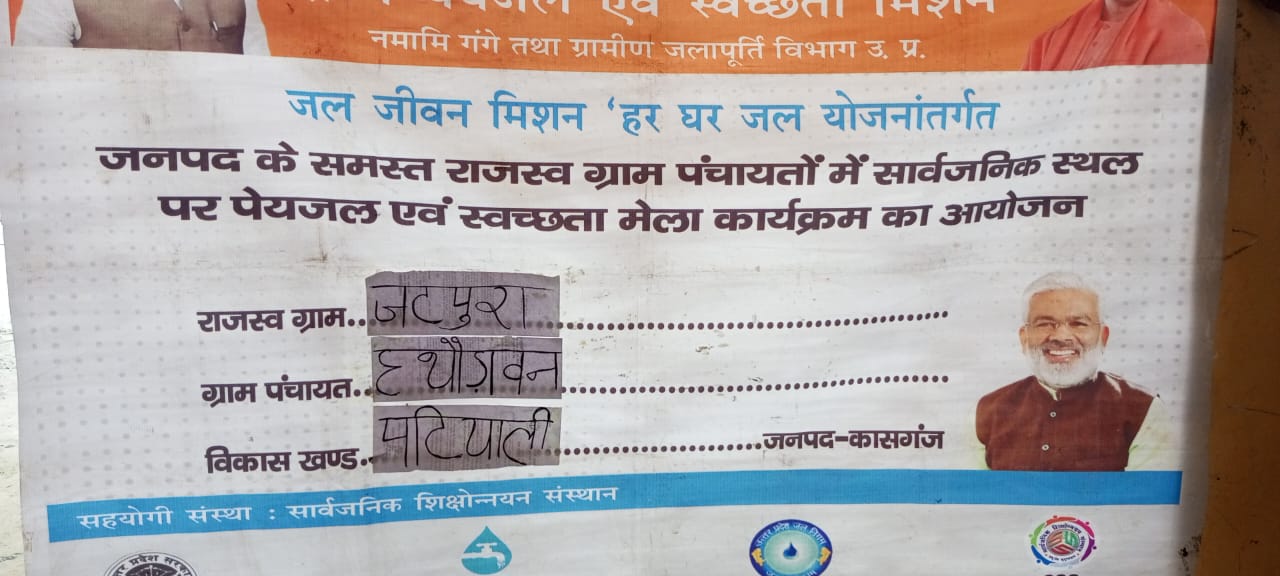 पेयजल एवं स्वच्छता मिशन
नमामि गंगे तथा ग्रामीण जलापूर्ति विभाग उ. प्र.
जल जीवन मिशन ‘हर घर जल योजनांतर्गत
जनपद के समस्त राजस्व ग्राम पंचायतों में सार्वजनिक स्थल
पर पेयजल एवं स्वच्छता मेला कार्यक्रम का आयोजन
राजस्व ग्राम..जटपुरा..........
ग्राम पंचायत..हथौड़ावन..........
विकास खण्ड..पटियाली..........जनपद-कासगंज
सहयोगी संस्था : सार्वजनिक शिक्षोन्नयन संस्थान
उत्तर प्रदेश जल निगम